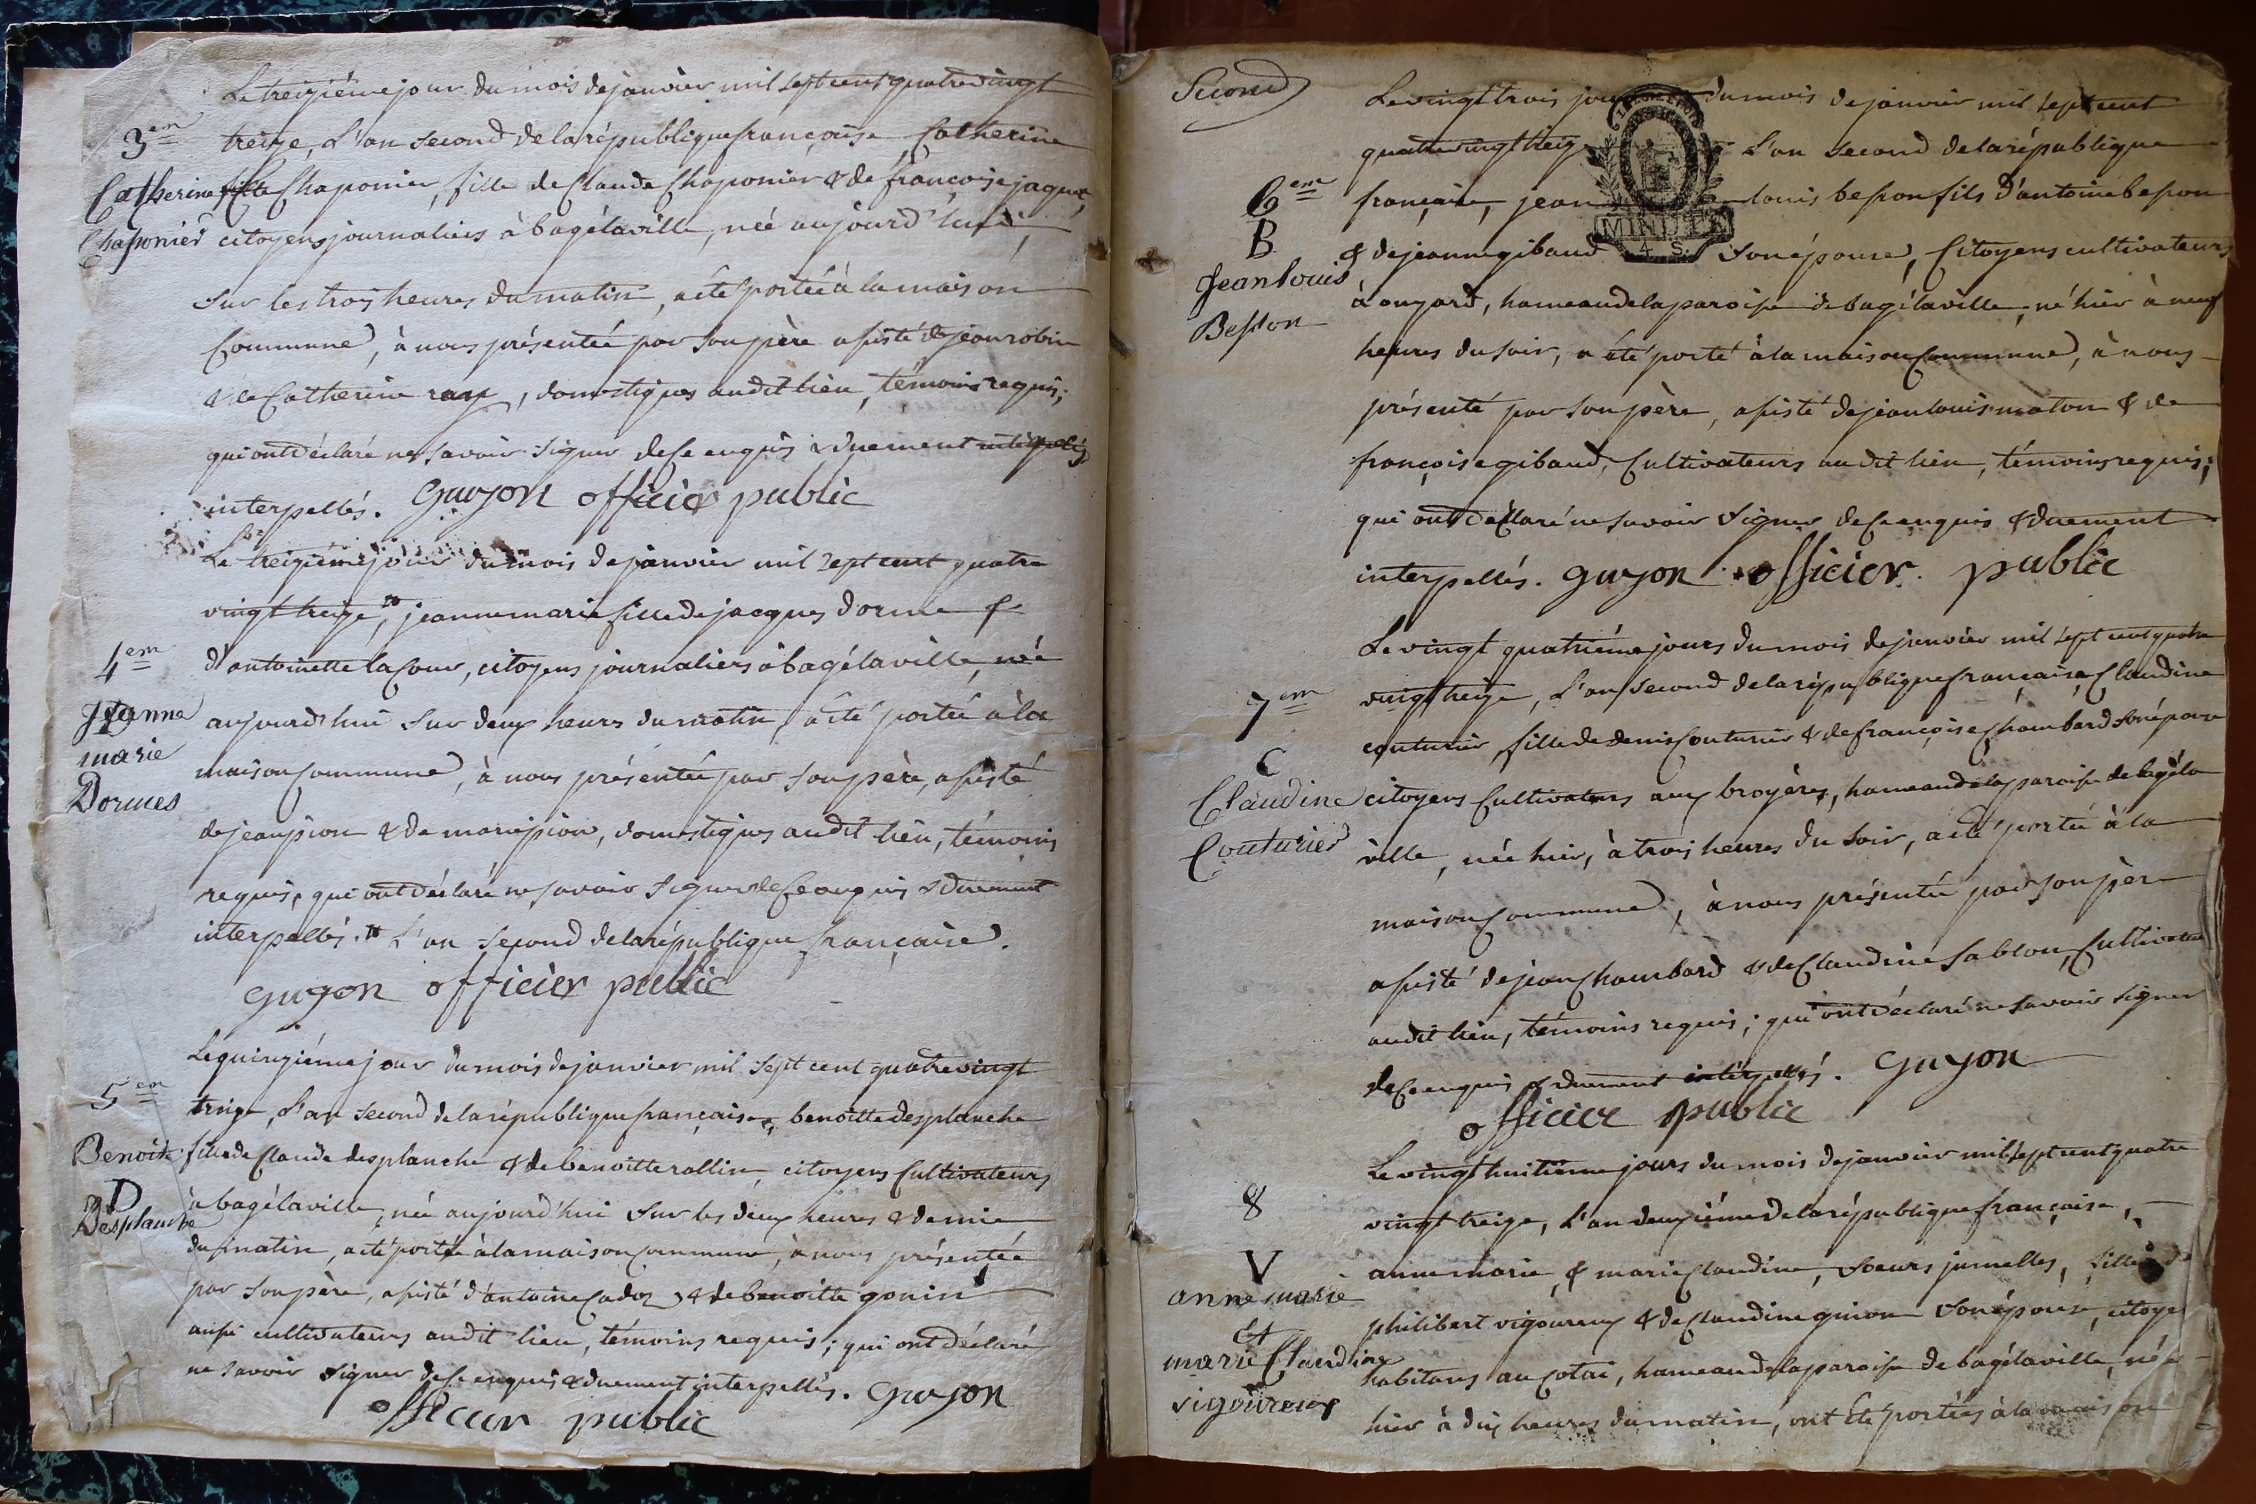 Le treiziéme jour du mois de janvier mil sept cent quatre vingt
3em
treize, L'an second de la république françoise, Catherine
Catherine Chaponier, fille de Claude Chaponier & de françoise jaquet,
Chaponier
citoyens journaliers à bagélaville, née aujourd'hui,
sur les trois heures du matin, a été portée à la maison
Commune, à nous présentée par son père assisté de jean robin
& de Catherine ray, domestiques audit lieu, témoins requis;
qui ont déclaré ne savoir signer de ce enquis & duement
interpellés. Guyon officier public
Le treiziéme jour du mois de janvier mil sept cent quatre
vingt treize, jeanne marie fille de jacques dorme &
4em
d'antoinette lacour, citoyens journaliers à bagélaville, née
Jeanne
marie
Dormes
aujourd'hui sur deux heures du matin, a été portée à la
maison Commune, à nous présentée par son père, assisté
de jean pion & de marie pion, domestiques audit lieu, témoins
requis, qui ont déclaré ne savoir signer de ce enquis & duement
interpellés. L'an second de la république française.
Guyon officier public
Le quinziéme jour du mois de janvier mil sept cent quatre vingt
5em
treize, L'an second de la république française, benoitte desplanche
Benoite
fille de Claude desplanche & de benoitte rollin, citoyens Cultivateurs
D
Desplanche
à bagélaville, née aujourd'hui sur les deux heures & demie
du matin, a été portée à la maison Commune, à nous présentée
par son père, assisté d'antoine Cadoz & de benoitte gonin
aussi cultivateurs audit lieu, témoins requis; qui ont déclaré
ne savoir signer de ce enquis & duement interpellés. Guyon
officier public
Second
Le vingt trois jour du mois de janvier mil sept cent
quatre vingt treize L'an second de la république
6em
B
Jean Louis
Besson
française, jean louis besson fils d'antoine besson
& de jeanne gibaud son épouse, Citoyens cultivateurs
à onzard, hameau de la paroisse de bagélaville, né hier à neuf
heures du soir, a été porté à la maison Commune, à nous
présenté par son père, assisté de jean louis maton & de
françoise gibaud, Cultivateurs audit lieu, témoins requis;
qui ont déclaré ne savoir signer de ce enquis & duement
interpellés. Guyon officier public
MINUTE
4 S.
Le vingt quatriéme jours du mois de janvier mil sept cent quatre
7em
C
Claudine
Couturier
vingt treize, L'an second de la république française Claudine
couturier, fille de denis Couturier & de françoise Chambard son épouse
citoyens Cultivateurs aux broyères, hameau de la paroisse de bagéla
ville, née hier, à trois heures du soir, a été portée à la
maison Commune, à nous présentée par son père
assisté de jean Chambard & de Claudine Sablon, Cultivateurs
audit lieu, témoins requis; qui ont déclaré ne savoir signer
de ce enquis & duement interpellés. Guyon
officier public
Le vingt huitiéme jours du mois de janvier mil sept cent quatre
8
V
anne marie
et
marie Claudine
vigoureux
vingt treize, L'an deuxiéme de la république française,
anne marie & marie Claudine, soeurs jumelles, filles de
philibert vigoureux & de Claudine guion son épouse, citoyens
habitans au Cotai, hameau de la paroisse de bagélaville, nées
hier à dix heures du matin, ont été portées à la maison